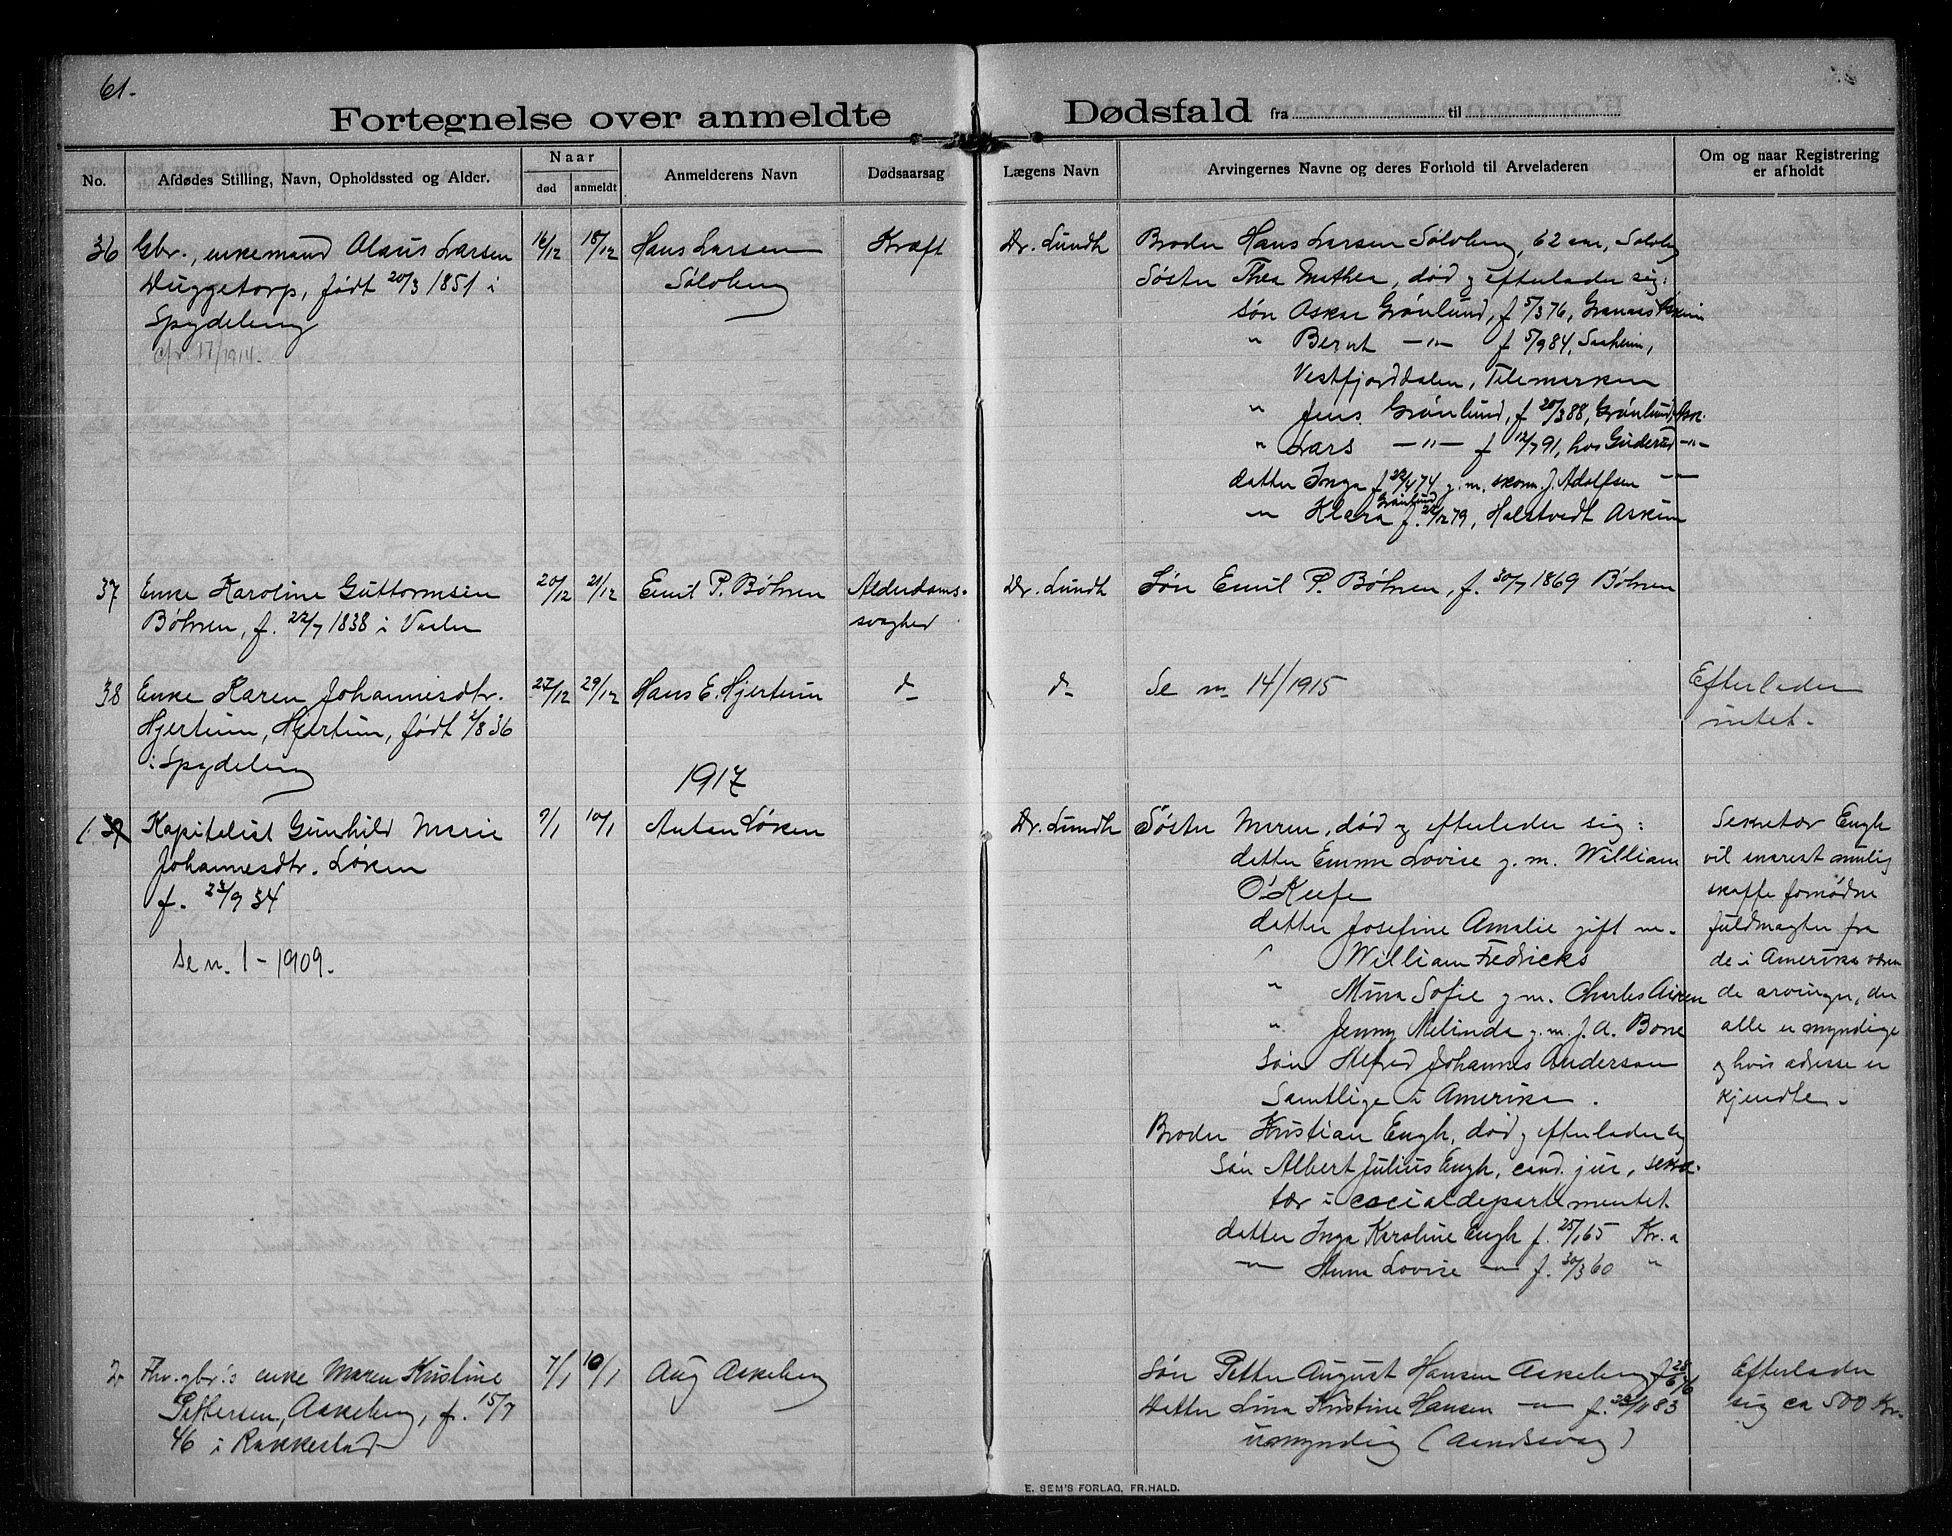 61.
Fortegnelse over anmeldte Dødsfald fra til
No.
Afdødes Stilling, Navn, Opholdssted og Alder.
Naar
død
anmeldt
Anmelderens Navn
Dødsaarsag
Lægens Navn
Arvingernes Navne og deres Forhold til Arveladeren
Om og naar Registrering
er afholdt
36 Gbr., enkemand Olaus Larsen
Duggetorp, født 20/3 1851 i
Spydeberg
cfr. 17/1914.
16/12 18/12
Hans Larsen
Solberg
Kræft
Dr. Lundh
Broder Hans Larsen Solberg, 62 aar, Solberg
Søster Thea Mathea, død og efterlader sig:
søn Oskar Grønlund, f 5/3 76, Askim
" Bernt —"— f 5/9 84, Saaheim,
Vestfjorddalen, Telemarken
" Jens Grønlund, f 20/3 88, Grønlund, Ask.
" Lars —"— f 12/7 91, hos Guderud —"—
datter Inga f 29/4 74 g.m. skom. J. Adolfsen —"—
Grønlund
—"— Klara f. 22/12 79, Halstvedt Askim
37 Enke Karoline Guttormsen
Bøhren, f. 22/7 1838 i Vaaler
20/12 21/12
Emil P. Bøhren
Alderdoms-
svaghed
Dr. Lundh
Søn Emil P. Bøhren, f. 30/7 1869 Bøhren
38 Enke Karen Johannesdtr.
Hjertum, Hjertum, født 2/8 36
i Spydeberg
27/12 29/12
Hans E. Hjertum
do
do
Se nr 14/1915
Efterlader
intet.
1917
1. 39 Kapitalist Gunhild Marie
Johannesdtr. Løken
f. 27/9 34
Se n. 1 - 1909.
9/1 10/1
Anton Løken
Dr. Lundh
Søster Maren, død og efterlader sig:
datter Emma Lovise g.m. William
O'Keefe
datter Josefine Amalie gift m.
William Fredricks
" Mina Sofie g.m. Charles Airen
" Jenny Melinda g.m. J.A. Bone
Søn Alfred Johannes Anderson
Samtlige i Amerika.
Broder Kristian Engh, død og efterlader sig
Søn Albert Julius Engh, cand. jur., sekre-
tær i socialdepartementet.
datter Inga Karoline Engh f. 25/1 65 Kr.a
—"— Anna Lovise —"— f. 30/3 60 "
Sekretær Engh
vil snarest mulig
skaffe fornødne
fuldmagter fra
de i Amerika væren
de arvinger, der
alle er myndige
og hvis adresse er
kjendte.
2 Fhv. gbr.s enke Maren Kristine
Pettersen, Askeberg, f. 15/7
46 i Rakkestad
7/1 10/1
Aug Askeberg
Søn Petter August Hansen Askeberg f 28/6 76
Datter Lina Kristine Hansen —"— f. 22/11 83
umyndig (aandssvag)
Efterlader
sig ca 500 Kr.
E. SEM'S FORLAG, FR.HALD.